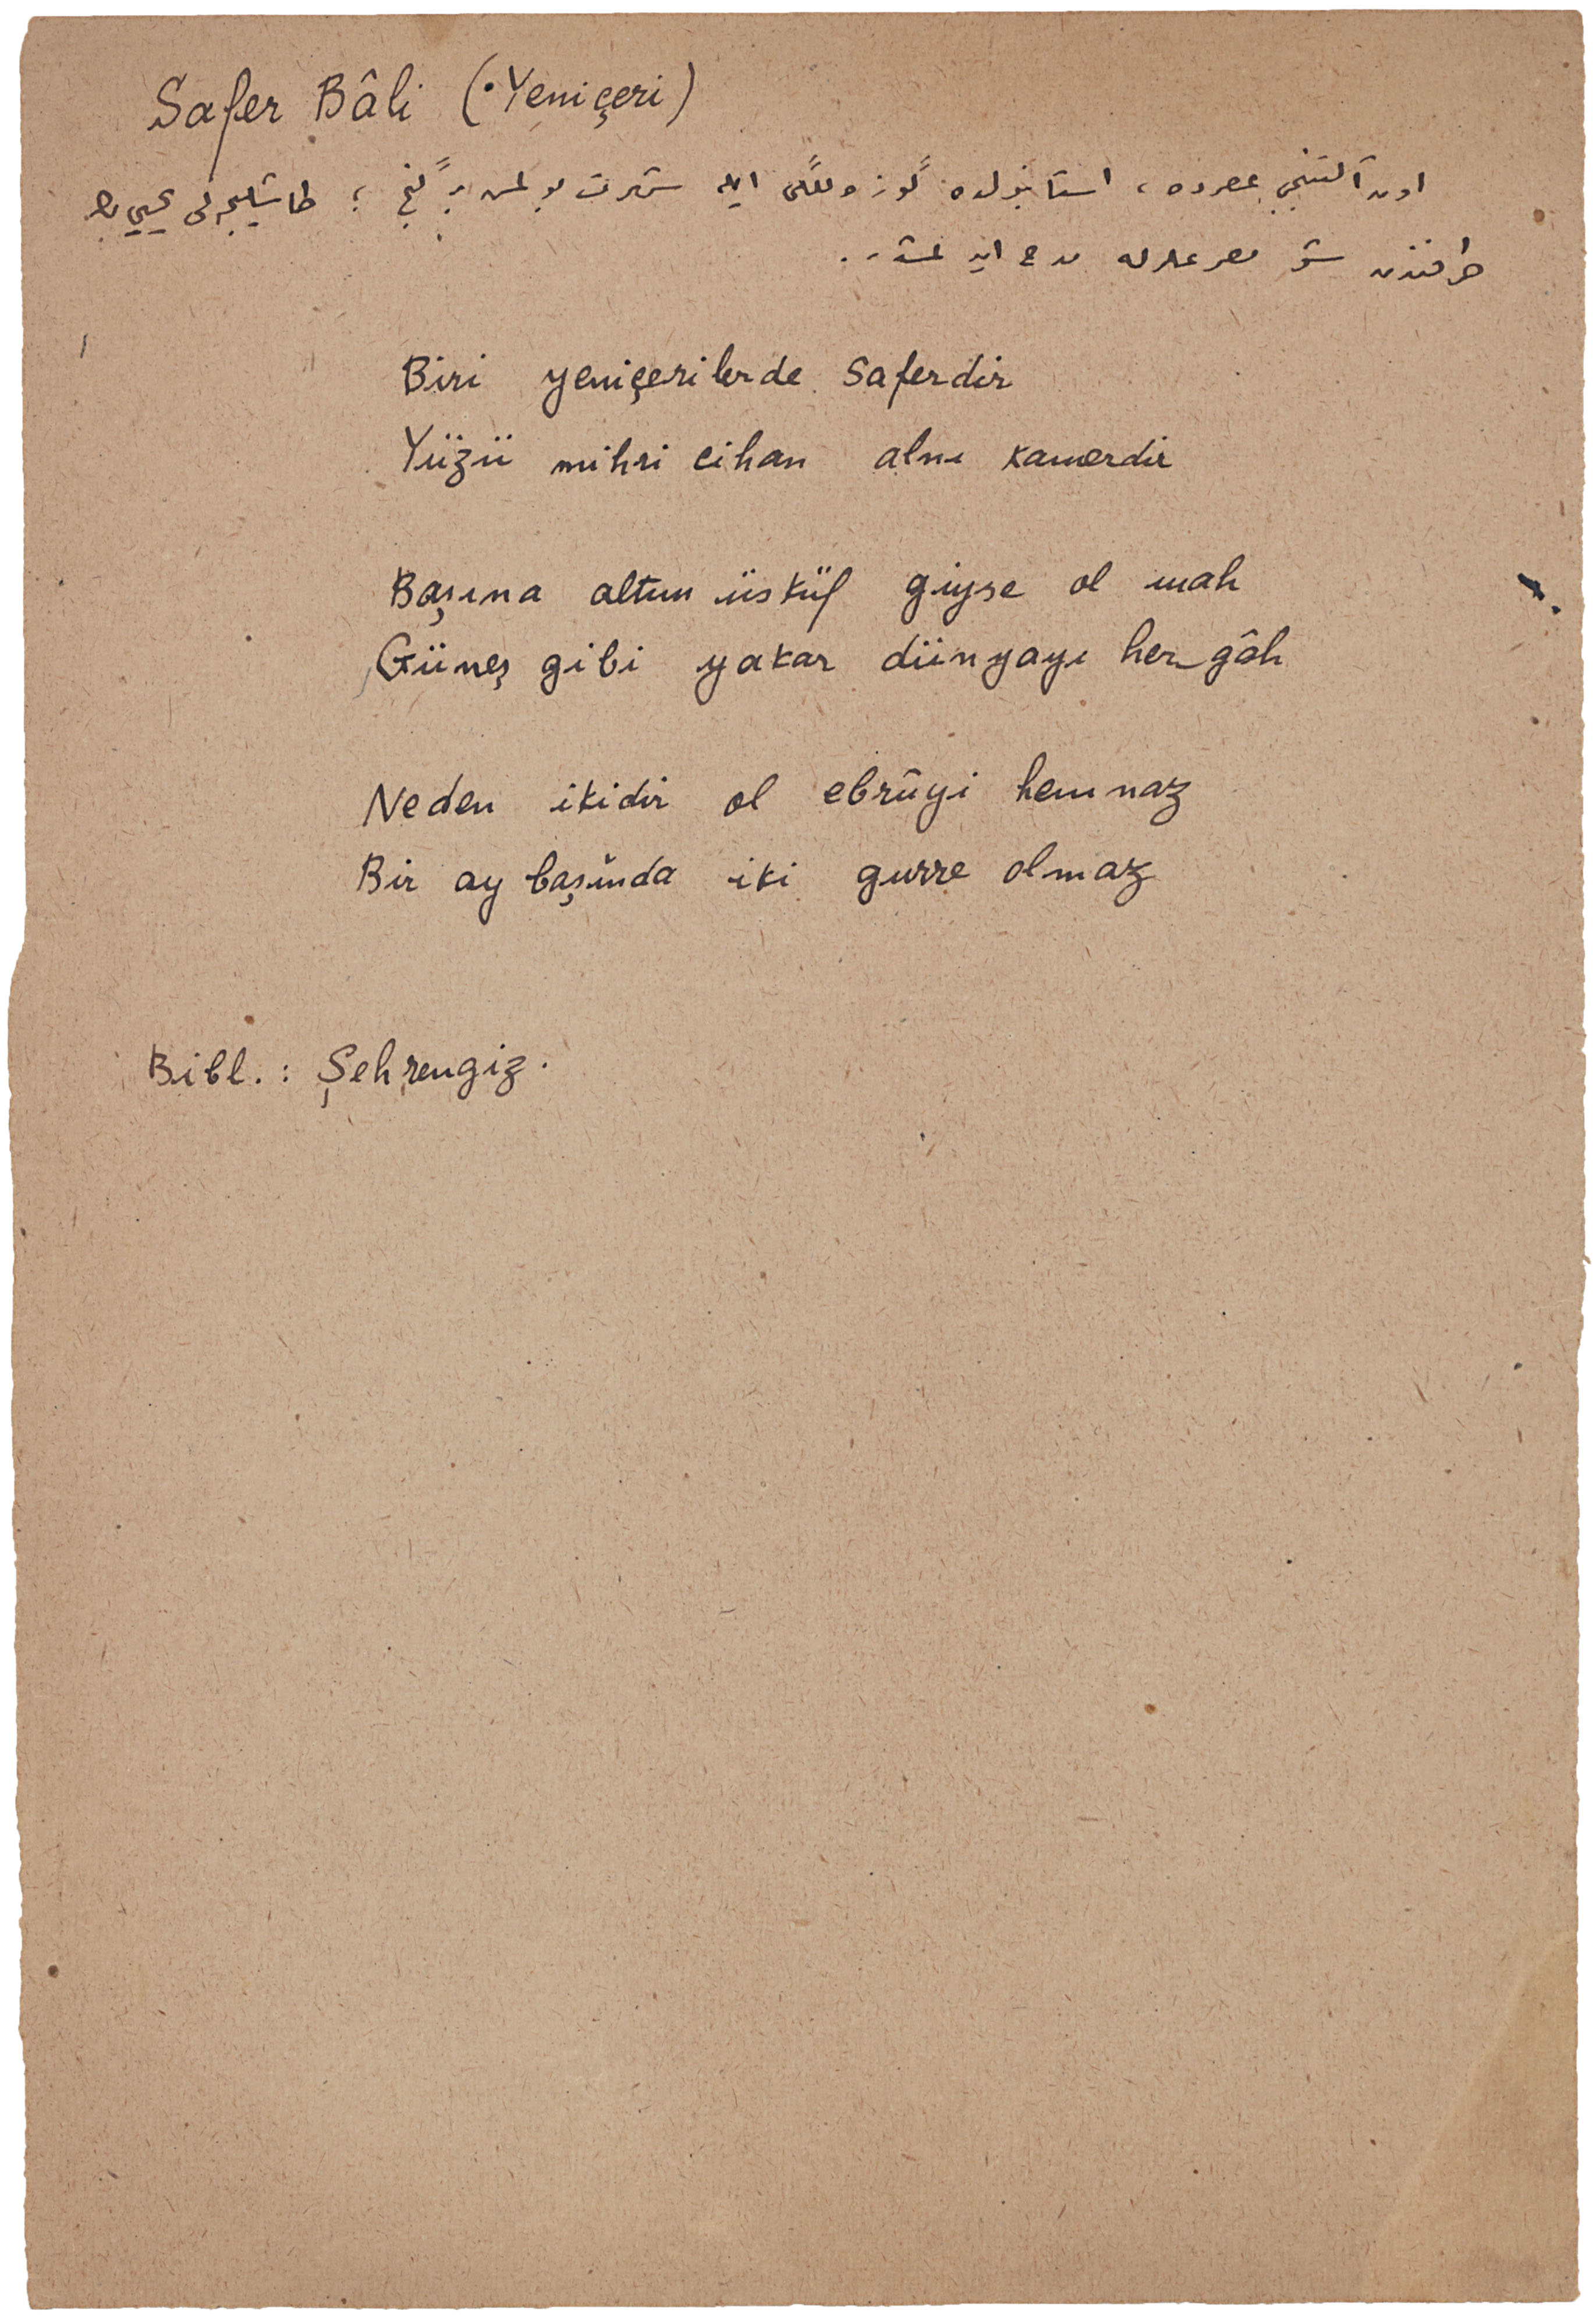 Safer Bâli (Yeniçeri)
اون آلتنجى عصرده ، استانبولده گوزهللگى ايله شهرت بولمش بر گنج ؛ طاشليجهلى يحيى بك
طرفندن شو مصرعلرله مدح ايدلمشدر.
Biri yeniçerilerde Saferdir
Yüzü mihri cihan alnı kamerdir
Başına altun üsküf giyse ol mah
Güneş gibi yakar dünyayı her gâh
Neden ikidir ol ebrûyi hemnaz
Bir ay başında iki gurre olmaz
Bibl.: Şehrengiz.